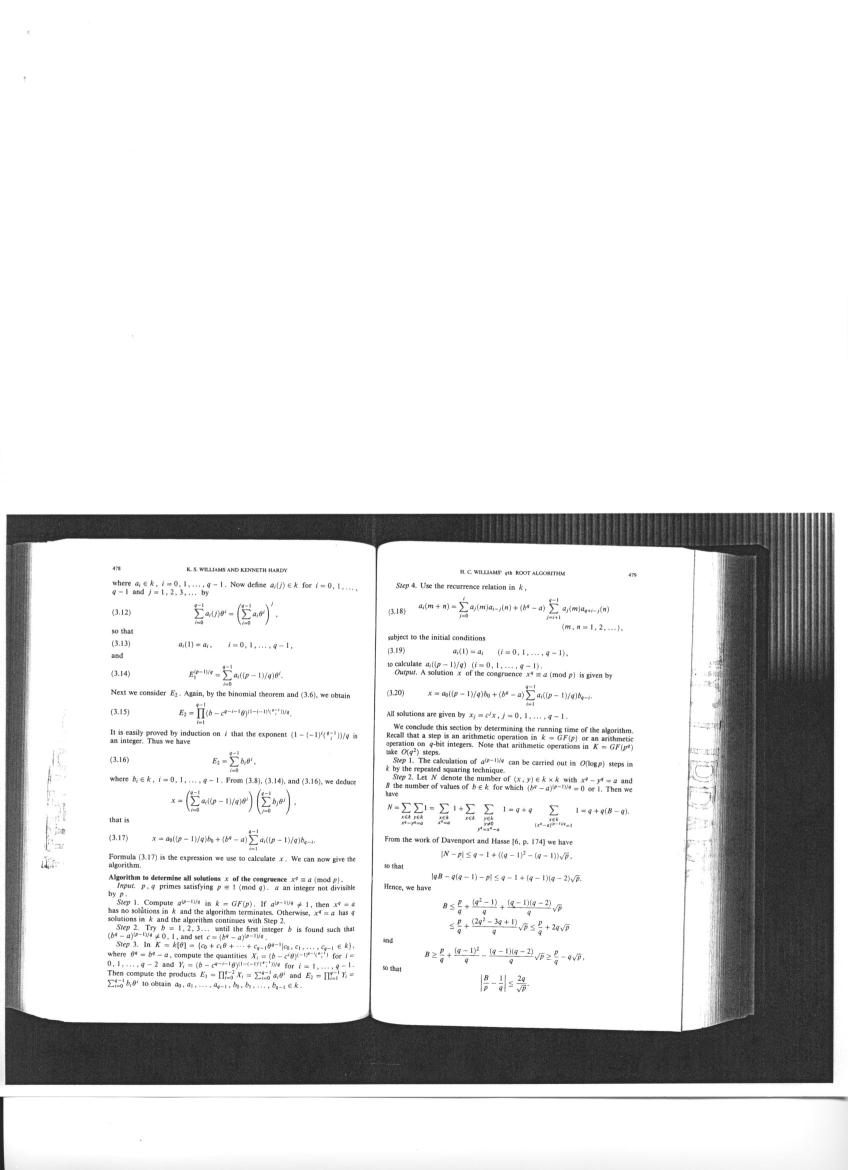 478 K. S. WILLIAMS AND KENNETH HARDY
where aᵢ ∈ k, i = 0, 1, ..., q − 1. Now define aᵢ(j) ∈ k for i = 0, 1, ...,
q − 1 and j = 1, 2, 3, ... by
(3.12) ∑_{i=0}^{q−1} aᵢ(j)θⁱ = (∑_{i=0}^{q−1} aᵢθⁱ)^j,
so that
(3.13) aᵢ(1) = aᵢ, i = 0, 1, ..., q − 1,
and
(3.14) E₁^{(p−1)/q} = ∑_{i=0}^{q−1} aᵢ((p − 1)/q)θⁱ.
Next we consider E₂. Again, by the binomial theorem and (3.6), we obtain
(3.15) E₂ = ∏_{i=1}^{q−1} (b − c^{q−i−1}θ)^{(1−(−1)^i\binom{q−1}{i})/q}.
It is easily proved by induction on i that the exponent (1 − (−1)^i\binom{q−1}{i})/q is
an integer. Thus we have
(3.16) E₂ = ∑_{i=0}^{q−1} bᵢθⁱ,
where bᵢ ∈ k, i = 0, 1, ..., q − 1. From (3.8), (3.14), and (3.16), we deduce
x = (∑_{i=0}^{q−1} aᵢ((p − 1)/q)θⁱ)(∑_{j=0}^{q−1} bⱼθʲ),
that is
(3.17) x = a₀((p − 1)/q)b₀ + (b^q − a) ∑_{i=1}^{q−1} aᵢ((p − 1)/q)b_{q−i}.
Formula (3.17) is the expression we use to calculate x. We can now give the
algorithm.
Algorithm to determine all solutions x of the congruence x^q ≡ a (mod p).
Input. p, q primes satisfying p ≡ 1 (mod q). a an integer not divisible
by p.
Step 1. Compute a^{(p−1)/q} in k = GF(p). If a^{(p−1)/q} ≠ 1, then x^q = a
has no solutions in k and the algorithm terminates. Otherwise, x^q = a has q
solutions in k and the algorithm continues with Step 2.
Step 2. Try b = 1, 2, 3... until the first integer b is found such that
(b^q − a)^{(p−1)/q} ≠ 0, 1, and set c = (b^q − a)^{(p−1)/q}.
Step 3. In K = k[θ] = {c₀ + c₁θ + ··· + c_{q−1}θ^{q−1}|c₀, c₁, ..., c_{q−1} ∈ k},
where θ^q = b^q − a, compute the quantities Xᵢ = for i =
0, 1, ..., q − 2 and Yᵢ = (b − c^{q−i−1}θ)^{(1−(−1)^i\binom{q−1}{i})/q} for i = 1, ..., q − 1.
Then compute the products E₁ = ∏_{i=0}^{q−2} Xᵢ = ∑_{i=0}^{q−1} aᵢθⁱ and E₂ = ∏_{i=1}^{q−1} Yᵢ =
∑_{i=0}^{q−1} bᵢθⁱ to obtain a₀, a₁, ..., a_{q−1}, b₀, b₁, ..., b_{q−1} ∈ k.
H. C. WILLIAMS' qth ROOT ALGORITHM 479
Step 4. Use the recurrence relation in k,
(3.18) aᵢ(m + n) = ∑_{j=0}^{i} aⱼ(m)a_{i−j}(n) + (b^q − a) ∑_{j=i+1}^{q−1} aⱼ(m)a_{q+i−j}(n)
(m, n = 1, 2, ...),
subject to the initial conditions
(3.19) aᵢ(1) = aᵢ (i = 0, 1, ..., q − 1),
to calculate aᵢ((p − 1)/q) (i = 0, 1, ..., q − 1).
Output. A solution x of the congruence x^q ≡ a (mod p) is given by
(3.20) x = a₀((p − 1)/q)b₀ + (b^q − a) ∑_{i=1}^{q−1} aᵢ((p − 1)/q)b_{q−i}.
All solutions are given by xⱼ = cʲx, j = 0, 1, ..., q − 1.
We conclude this section by determining the running time of the algorithm.
Recall that a step is an arithmetic operation in k = GF(p) or an arithmetic
operation on q-bit integers. Note that arithmetic operations in K = GF(p^q)
take O(q²) steps.
Step 1. The calculation of a^{(p−1)/q} can be carried out in O(log p) steps in
k by the repeated squaring technique.
Step 2. Let N denote the number of (x, y) ∈ k × k with x^q − y^q = a and
B the number of values of b ∈ k for which (b^q − a)^{(p−1)/q} = 0 or 1. Then we
have
N = ∑_{x∈k} ∑_{y∈k, x^q−y^q=a} 1 = ∑_{x∈k, x^q=a} 1 + ∑_{x∈k} ∑_{y∈k, y≠0, y^q=x^q−a} 1 = q + q ∑_{x∈k, (x^q−a)^{(p−1)/q}=1} 1 = q + q(B − q).
From the work of Davenport and Hasse [6, p. 174] we have
|N − p| ≤ q − 1 + ((q − 1)² − (q − 1))√p,
so that
|qB − q(q − 1) − p| ≤ q − 1 + (q − 1)(q − 2)√p.
Hence, we have
B ≤ p/q + (q² − 1)/q + ((q − 1)(q − 2)/q)√p
≤ p/q + ((2q² − 3q + 1)/q)√p ≤ p/q + 2q√p
and
B ≥ p/q + (q − 1)²/q − ((q − 1)(q − 2)/q)√p ≥ p/q − q√p,
so that
|B/p − 1/q| ≤ 2q/√p.